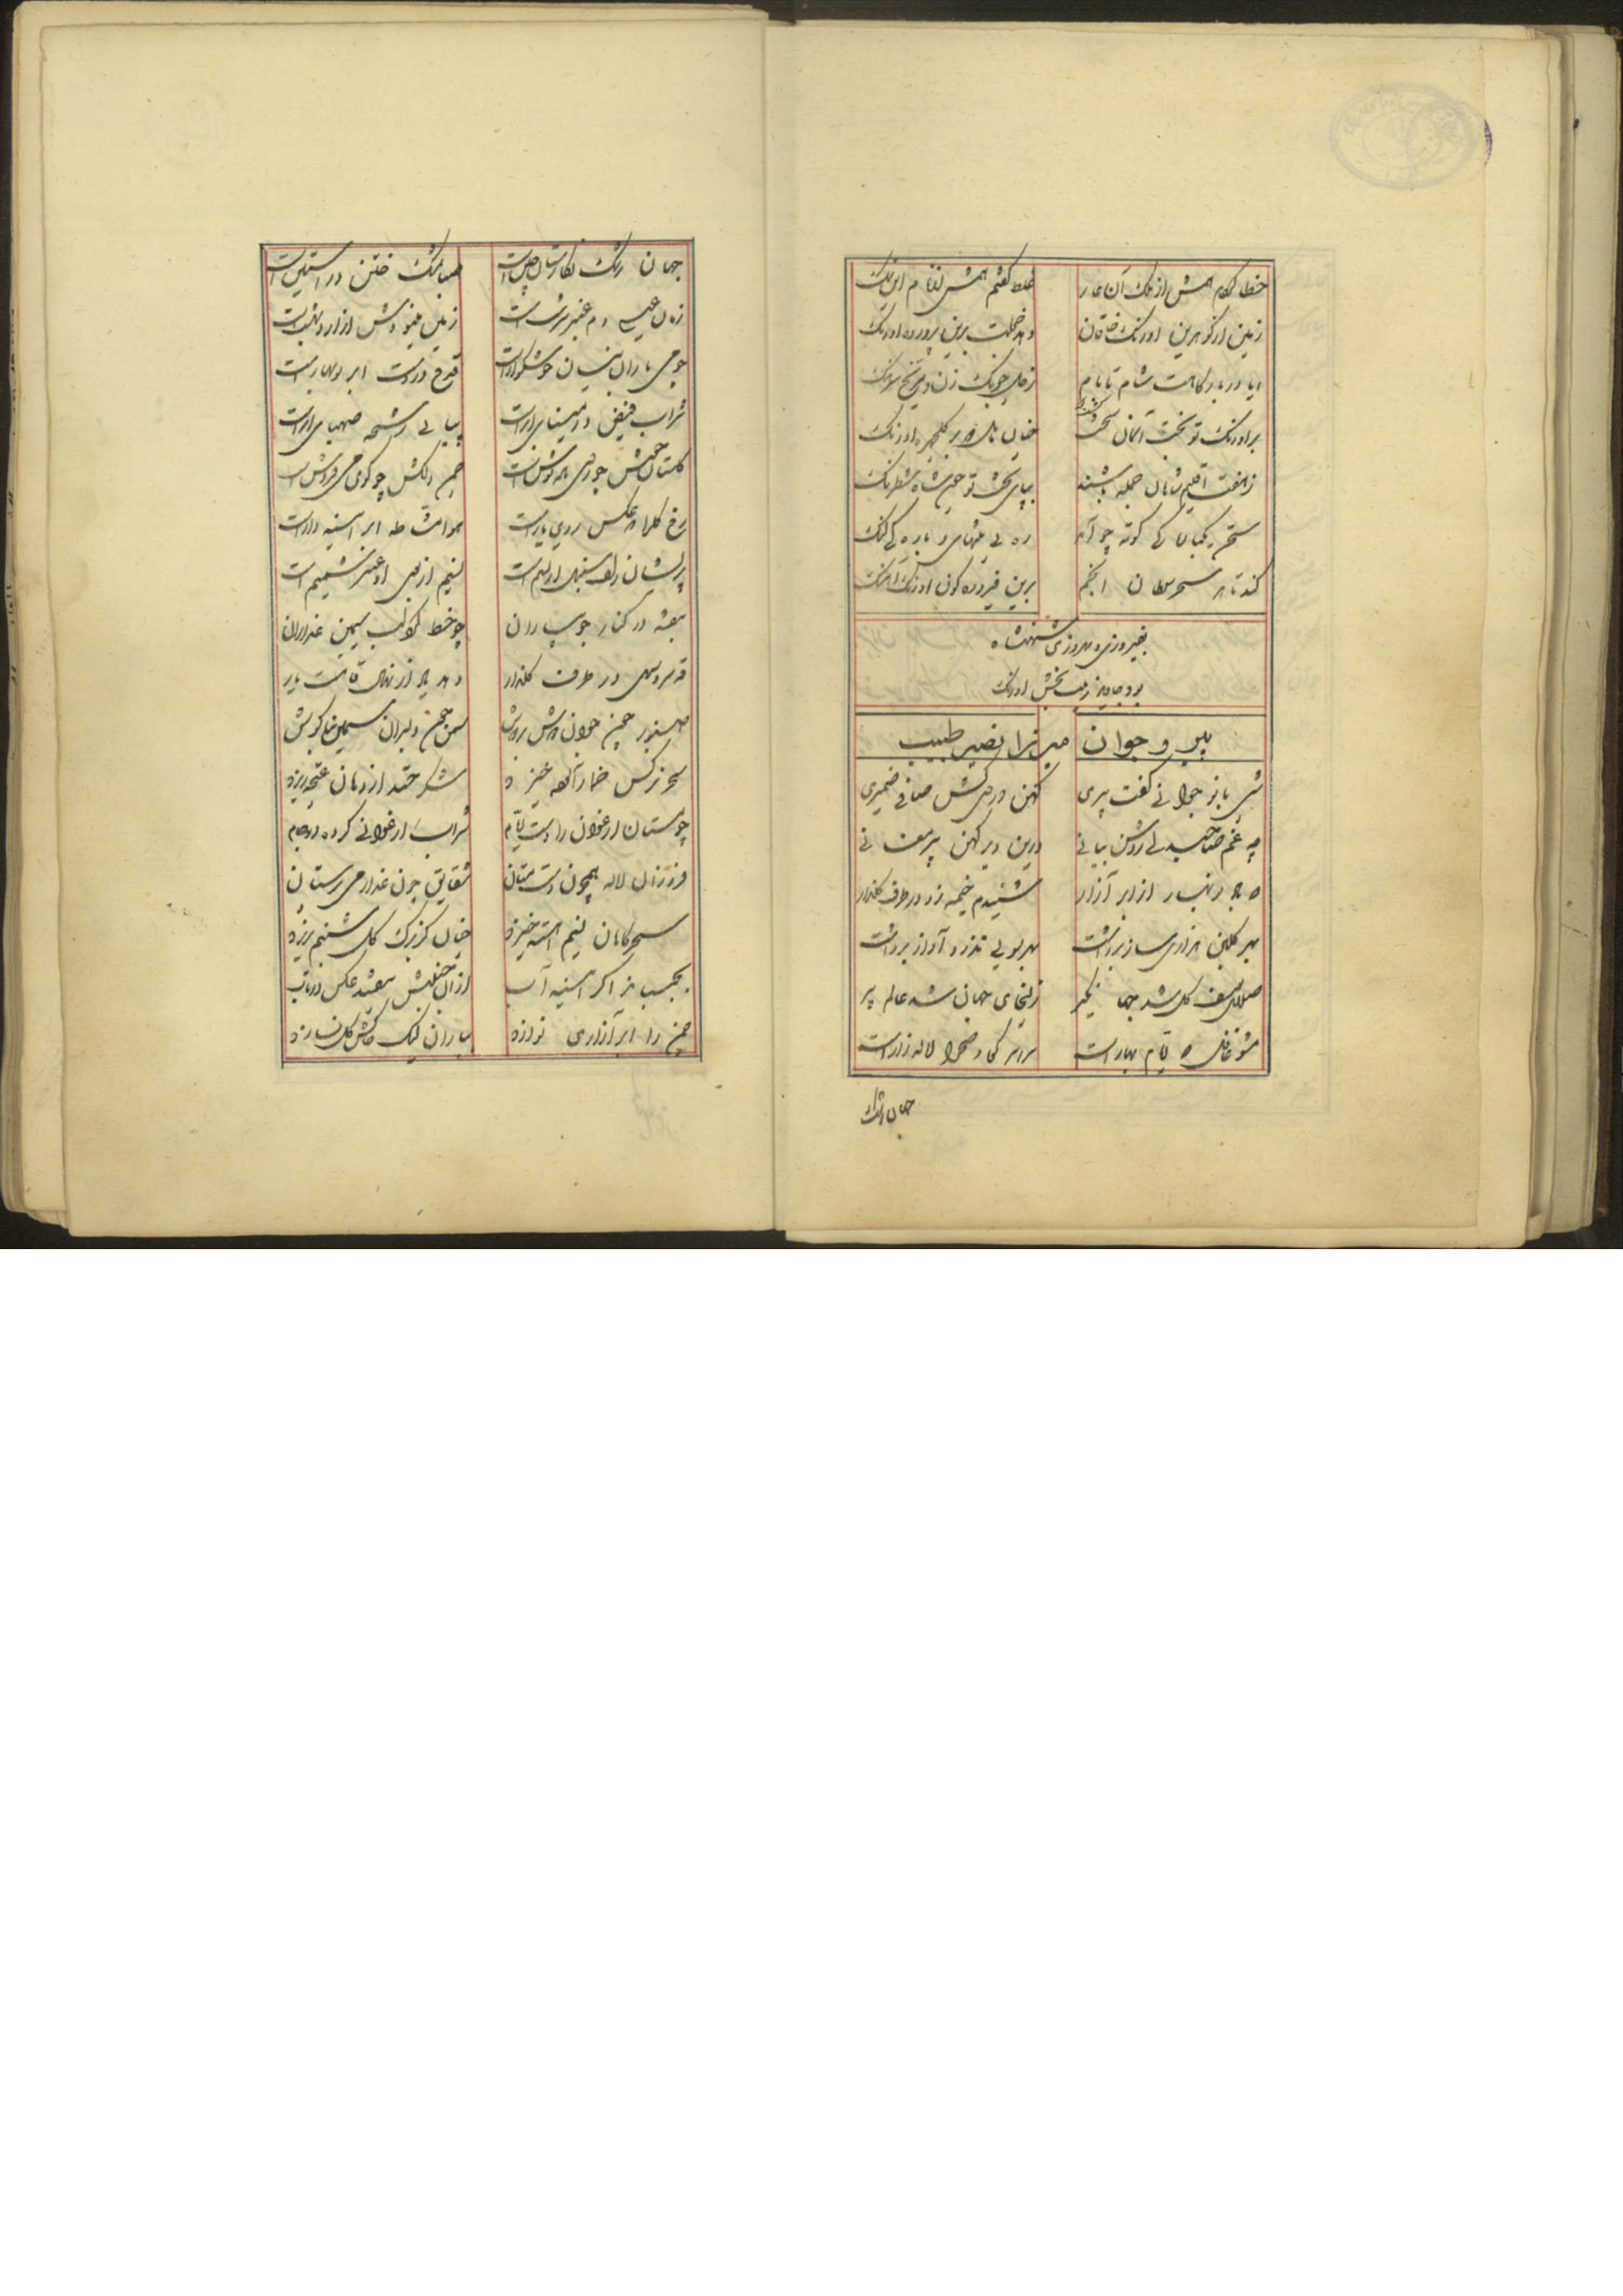 خطا کردم همش از ننگ آن عار غلط گفتم همش از نام این ننگ
زمین از گوهرین اورنگ خاقان دهد خجلت برین پیروزه اورنگ
ایا در بارگاهت شام تا بام زحل چوبک زن و مریخ سرهنگ
بر اورنگ تو تخت آسمان تخت
ز هفت اقلیم شاهان جمله باشند بپای تخت تو چون شاه شطرنج
سخن کوته چو آمد
کند تا هر سحر سلطان انجم برین فیروزه گون اورنگ آهنگ
بفیروزی و بهروزی شهنشاه
بود جاوید زینت بخش اورنگ
پیر و جوان میرزا نصیر طبیب
شبی با نوجوانی گفت پیری کهن دردی کشی صافی ضمیری
چه غم صاحبدلی روشن بیانی درین دیر کهن پیر مغانی
که باد نوبهار از ابر آزار شنیدم خیمه زد در طرف گلزار
بهر گلبن هزاری ساز برداشت بهر بویی تذرو آواز برداشت
صلای یوسف گل شد جهانگیر زلیخای جهان شد عالم پیر
مشو غافل که ایام بهار است سراسر کوه و صحرا لاله زار است
جهان رشک
جهان رشک نگارستان چین است صبا را مشک ختن در آستین است
زمان عیسی دم عنبر سرشت است زمین مینووش از اردیبهشت است
چو می باران نیسان خوشگوار است قدح در دست ابر نوبهار است
شراب فیض در مینای ابر است پیاپی رشحه صهبای ابر است
گلستان خمش چون می به نوش است چمن دلکش چو کوی می فروش است
رخ گلها به عکس روی یار است هوا مشاطه ابر آیینه دار است
پریشان زلف سنبل از نسیم است نسیم از بوی او عنبر شمیم است
بنفشه در کنار جویباران چو خط گرد لب سیمین عذاران
قد سرو سهی در طرف گلزار دهد یاد از نهال قامت یار
صنوبر چون جوانان دوش بر دوش سمن چون دلبران سیمین بناگوش
سحر نرگس خمار آلوده خیزد شکر خند از دهان غنچه ریزد
چو مستان ارغوان را دست ایام شراب ارغوانی کرده در جام
فروزان لاله همچون دست مستان شقایق چون عذار می پرستان
سحرگاهان نسیم آهسته خیزد چنان کز برگ گل شبنم بریزد
بجنبد هر اگر آیینه آب از آن جنبش بیفتد عکس در تاب
چمن را ابر آزاری نوازد بباران لیک خاکش گل نسازد